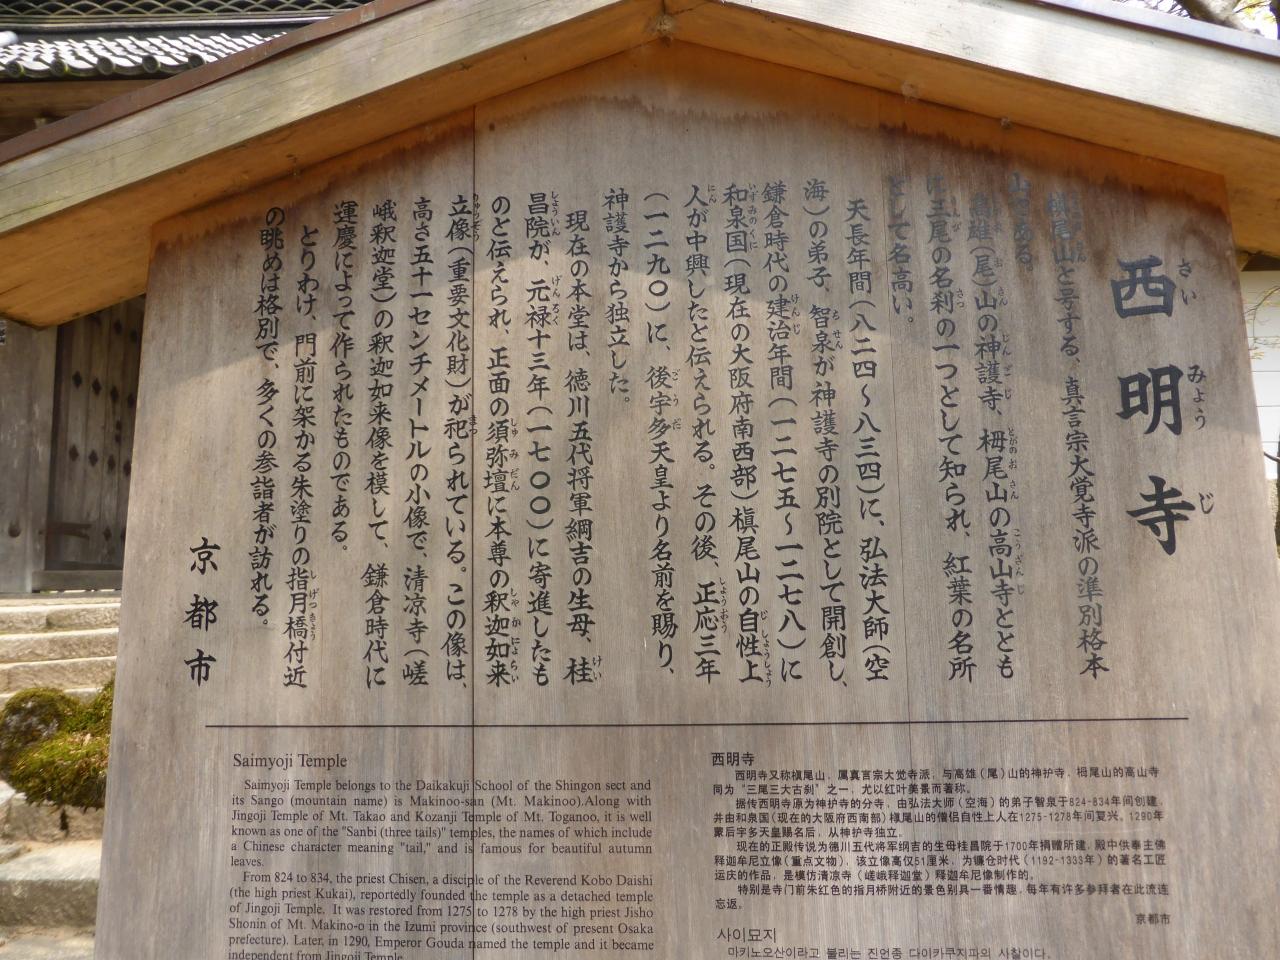 西明寺
さいみょうじ
槇尾山と号する、真言宗大覚寺派の準別格本
山である。
高雄(尾)山の神護寺、栂尾山の高山寺ととも
に三尾の名刹の一つとして知られ、紅葉の名所
として名高い。
天長年間(八二四〜八三四)に、弘法大師(空
海)の弟子、智泉が神護寺の別院として開創し、
鎌倉時代の建治年間(一二七五〜一二七八)に
和泉国(現在の大阪府南西部)槇尾山の自性上
人が中興したと伝えられる。その後、正応三年
(一二九〇)に、後宇多天皇より名前を賜り、
神護寺から独立した。
現在の本堂は、徳川五代将軍綱吉の生母、桂
昌院が、元禄十三年(一七〇〇)に寄進したも
のと伝えられ、正面の須弥壇に本尊の釈迦如来
立像(重要文化財)が祀られている。この像は、
高さ五十一センチメートルの小像で、清凉寺(嵯
峨釈迦堂)の釈迦如来像を模して、鎌倉時代に
運慶によって作られたものである。
とりわけ、門前に架かる朱塗りの指月橋付近
の眺めは格別で、多くの参詣者が訪れる。
京都市
Saimyoji Temple
Saimyoji Temple belongs to the Daikakuji School of the Shingon sect and
its Sango (mountain name) is Makinoo-san (Mt. Makinoo).Along with
Jingoji Temple of Mt. Takao and Kozanji Temple of Mt. Toganoo, it is well
known as one of the "Sanbi (three tails)" temples, the names of which include
a Chinese character meaning "tail," and is famous for beautiful autumn
leaves.
From 824 to 834, the priest Chisen, a disciple of the Reverend Kobo Daishi
(the high priest Kukai), reportedly founded the temple as a detached temple
of Jingoji Temple. It was restored from 1275 to 1278 by the high priest Jisho
Shonin of Mt. Makino-o in the Izumi province (southwest of present Osaka
prefecture). Later, in 1290, Emperor Gouda named the temple and it became
independent from Jingoji Temple.
西明寺
西明寺又称槇尾山，属真言宗大觉寺派，与高雄（尾）山的神护寺，栂尾山的高山寺
同为"三尾三大古刹"之一，尤以红叶美景而著称。
据传西明寺原为神护寺的分寺，由弘法大师（空海）的弟子智泉于824-834年间创建，
并由和泉国(现在的大阪府西南部）槇尾山的僧侣自性上人在1275-1278年间复兴。1290年
蒙后宇多天皇赐名后，从神护寺独立。
现在的正殿传说为德川五代将军纲吉的生母桂昌院于1700年捐赠所建，殿中供奉主佛
释迦牟尼立像（重点文物），该立像高仅51厘米，为镰仓时代（1192-1333年）的著名工匠
运庆的作品，是模仿清凉寺（嵯峨释迦堂）释迦牟尼像制作的。
特别是寺门前朱红色的指月桥附近的景色别具一番情趣，每年有许多参拜者在此流连
忘返。
京都市
사이묘지
마키노오산이라고 불리는 진언종 다이카쿠지파의 사찰이다.